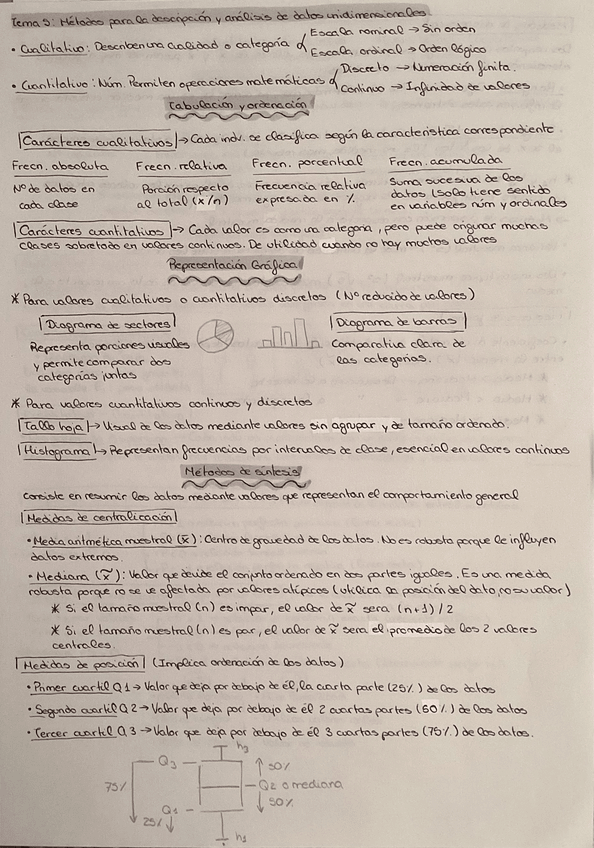 Tema 5: Métodos para la descripción y análisis de datos unidimensionales.
• Cualitativo: Describen una cualidad o categoría
Escala nominal → Sin orden
Escala ordinal → Orden lógico
• Cuantitativo: Núm. Permiten operaciones matemáticas
Discreto → Numeración finita.
Continuo → Infinidad de valores
Tabulación y ordenación
Carácteres cualitativos → Cada indv. se clasifica según la característica correspondiente.
Frecn. absoluta Frecn. relativa Frecn. porcentual Frecn. acumulada
Nº de datos en cada clase
Porción respecto al total (x/n)
Frecuencia relativa expresada en %
Suma sucesiva de los datos (solo tiene sentido en variables núm y ordinales
Carácteres cuantitativos → Cada valor es como una categoría, pero puede originar muchas
clases sobretodo en valores continuos. De utilidad cuando no hay muchos valores
Representación Gráfica
* Para valores cualitativos o cuantitativos discretos (Nº reducido de valores)
Diagrama de sectores
Representa porciones usuales
y permite comparar dos
categorías juntas
Diagrama de barras
Comparativa clara de
las categorías.
* Para valores cuantitativos continuos y discretos
Tallo hoja → Usual de los datos mediante valores sin agrupar y de tamaño ordenado.
Histograma → Representan frecuencias por intervalos de clase, esencial en valores continuos
Métodos de síntesis
Consiste en resumir los datos mediante valores que representan el comportamiento general
Medidas de centralización
• Media aritmética muestral (x̄): Centro de gravedad de los datos. No es robusta porque le influyen
datos extremos.
• Mediana (x̃): Valor que divide el conjunto ordenado en dos partes iguales. Es una medida
robusta porque no se ve afectada por valores atípicos (utiliza la posición del dato, no su valor)
* Si el tamaño muestral (n) es impar, el valor de x̃ sera (n+1)/2
* Si el tamaño muestral (n) es par, el valor de x̃ sera el promedio de los 2 valores
centrales.
Medidas de posición (Implica ordenación de los datos)
• Primer cuartil Q1 → Valor que deja por debajo de él, la cuarta parte (25%) de los datos
• Segundo cuartil Q2 → Valor que deja por debajo de él 2 cuartas partes (60%) de los datos
• Tercer cuartil Q3 → Valor que deja por debajo de él 3 cuartas partes (75%) de los datos.
h3
Q3
50%
75%
Q2 o mediana
50%
Q1
25%
h1